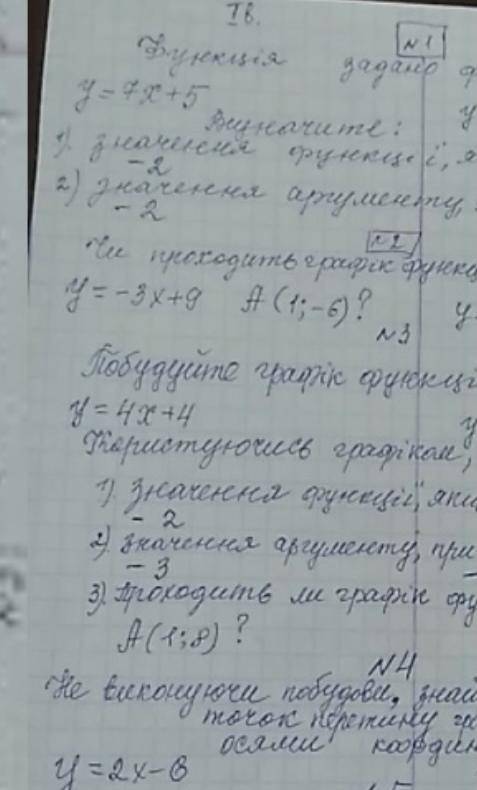 Ⅰв.
№1
Функція задано ф
y=7x+5
у
Визначите:
1) значення функції, я
-2
2) значення аргументу,
-2
№2
Чи проходить графік функц
y=-3x+9 A(1;-6)?
y
№3
Побудуйте графік функці
y=4x+4
y
Користуючись графіком,
1) значення функції, яки
-2
2) значення аргументу, при
-3
3) Проходить ли графік фу
A(1;8)?
№4
Не виконуючи побудови, знай
точок перетину г
осями координ
y=2x-6